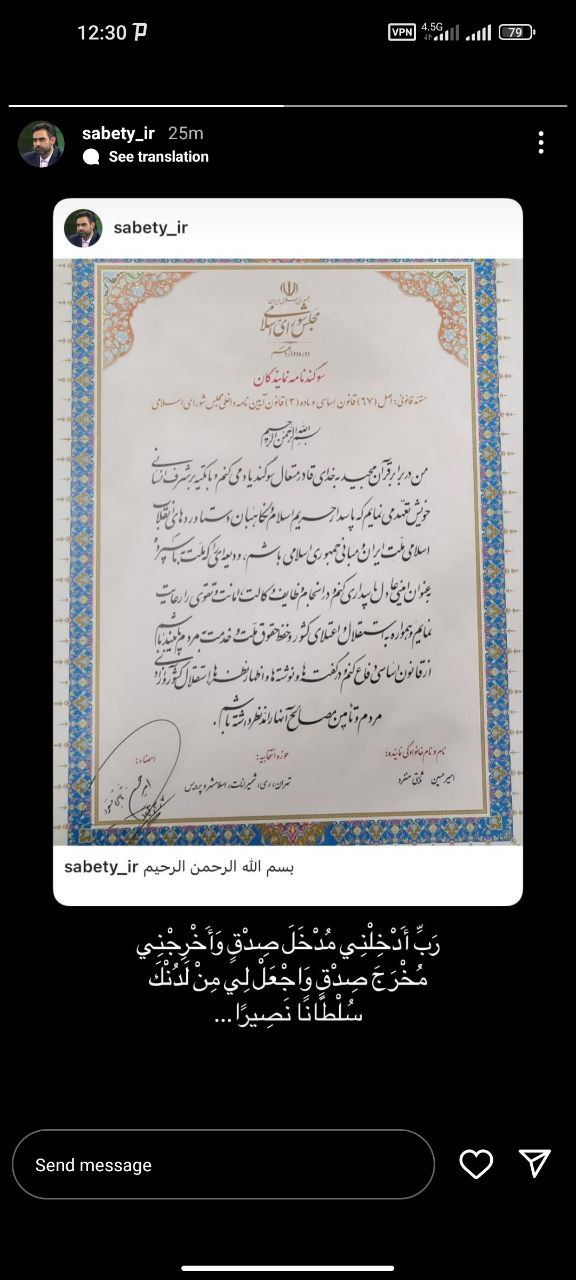 12:30
VPN 4.5G 79
sabety_ir 25m
See translation
sabety_ir
جمهوری اسلامی ایران
مجلس شورای اسلامی
دوره دوازدهم
سوگندنامه نمایندگان
مستند قانونی: اصل (۶۷) قانون اساسی و ماده (۳) قانون آیین نامه داخلی مجلس شورای اسلامی
بسم الله الرحمن الرحیم
من در برابر قرآن مجید به خدای قادر متعال سوگند یاد می کنم و با تکیه بر شرف انسانی
خویش تعهد می نمایم که پاسدار حریم اسلام و نگاهبان دستاوردهای انقلاب
اسلامی ملت ایران و مبانی جمهوری اسلامی باشم، ودیعه ای را که ملت به ما سپرده
به عنوان امینی عادل پاسداری کنم و در انجام وظایف وکالت، امانت و تقوی را رعایت
نمایم و همواره به استقلال و اعتلای کشور و حفظ حقوق ملت و خدمت به مردم پایبند باشم
از قانون اساسی دفاع کنم و در گفته ها و نوشته ها و اظهار نظرها، استقلال کشور و آزادی
مردم و تأمین مصالح آنها را مد نظر داشته باشم.
نام و نام خانوادگی نماینده: حوزه انتخابیه: امضاء:
امیرحسین ثابتی منفرد تهران، ری، شمیرانات، اسلامشهر و پردیس
sabety_ir بسم الله الرحمن الرحیم
رَبِّ أَدْخِلْنِي مُدْخَلَ صِدْقٍ وَأَخْرِجْنِي
مُخْرَجَ صِدْقٍ وَاجْعَلْ لِي مِنْ لَدُنْكَ
سُلْطَانًا نَصِيرًا...
Send message